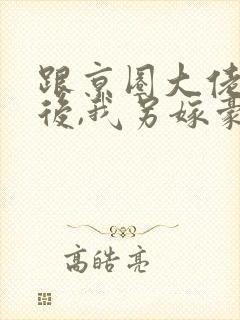 跟京圈大佬
後,我另嫁豪
高皓亮